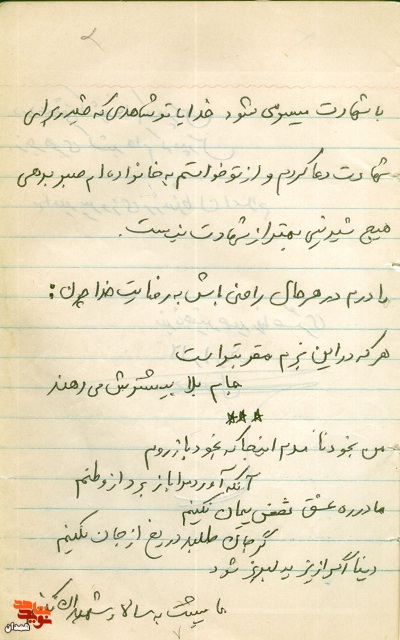 ۲
با شهادت میسر می شود خدایا تو شاهدی که چقدر برای
شهادت دعا کردم و از تو خواستم به خانواده ام صبر بدهی
هیچ شیرینی بهتر از شهادت نیست.
مادرم در هر حال راضی باش به رضایت خدا چون:
هر که در این بزم مقرب تر است
جام بلا بیشترش می دهند
***
من بخود نامدم اینجا که بخود باز روم
آنکه آورد مرا باز برد از وطنم
ما در ره عشق نقض پیمان نکنیم
گر جان طلبد دریغ از جان نکنیم
دنیا اگر از یزید لبریز شود
ما پشت به سالار شهیدان نکنیم
نوید شاهد
همدان